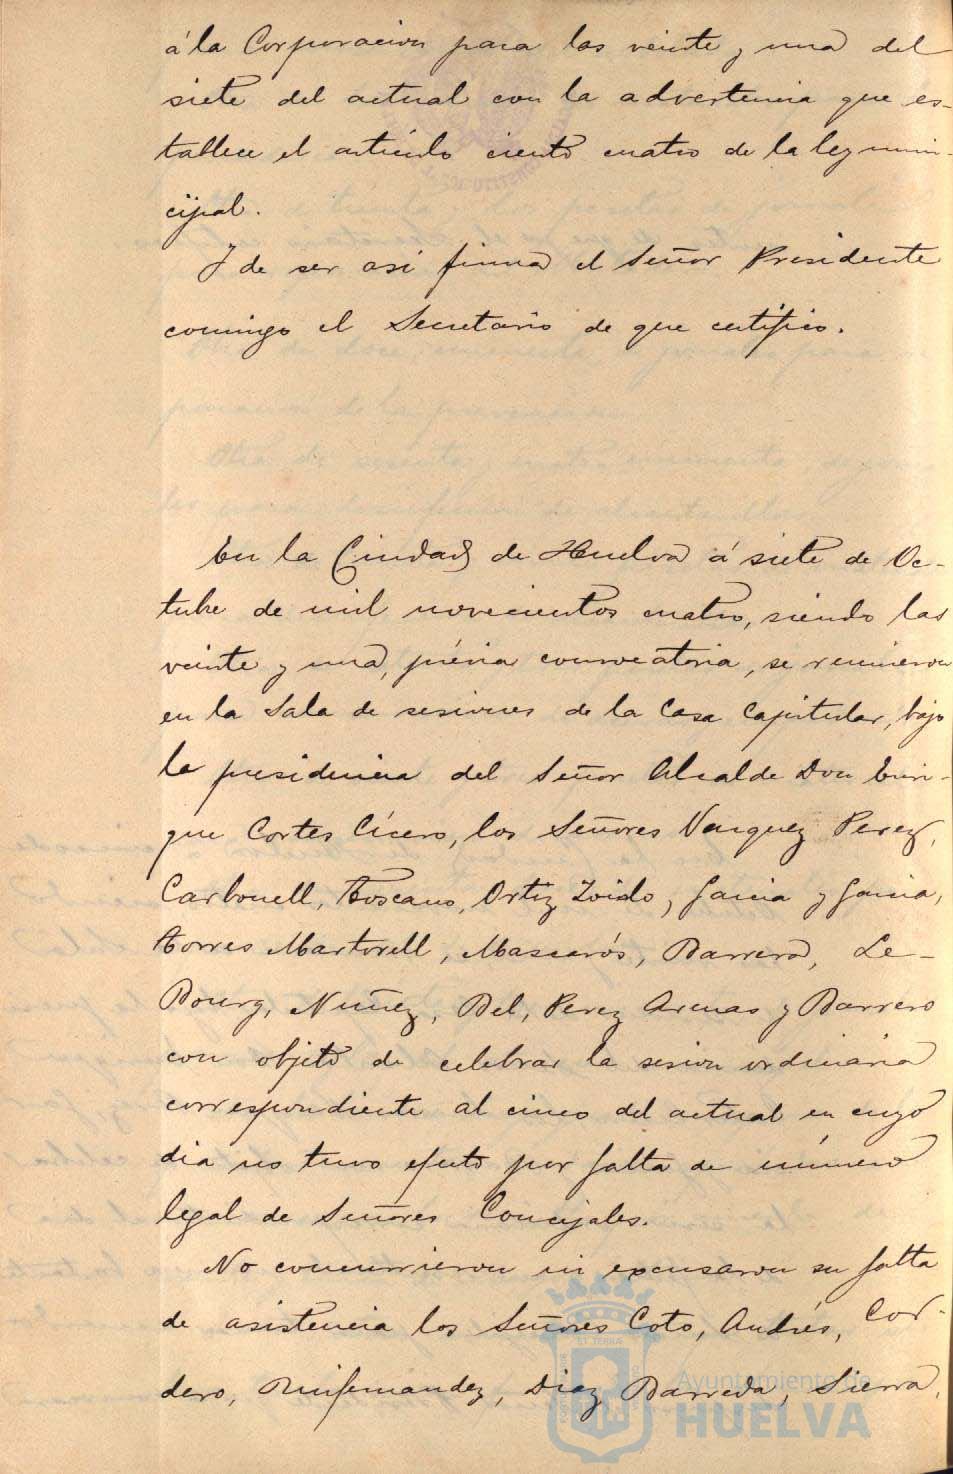 á la Corporacion para las veinte y una del
siete del actual con la advertencia que es-
tablece el artículo ciento cuatro de la ley muni-
cipal.
Y de ser asi firma el Señor Presidente
conmigo el Secretario de que certifico.
En la Ciudad de Huelva á siete de Oc-
tubre de mil novecientos cuatro, siendo las
veinte y una, prévia convocatoria, se reunieron
en la Sala de sesiones de la Casa Capitular, bajo
la presidencia del Señor Alcalde Don Enri-
que Cortes Cícero, los Señores Vazquez Perez,
Carbonell, Toscano, Ortiz Zoido, Garcia y Garcia,
Torres Martorell, Mascarós, Barrera, Le-
Bourg, Nuñez, Bel, Perez Arenas y Barrero
con objeto de celebrar la sesion ordinaria
correspondiente al cinco del actual en cuyo
dia no tuvo efecto por falta de número
legal de Señores Concejales.
No concurrieron ni excusaron su falta
de asistencia los Señores Coto, Andrés, Cor-
dero, Ruifernandez, Diaz Barreda, Sierra,
Ayuntamiento de
HUELVA